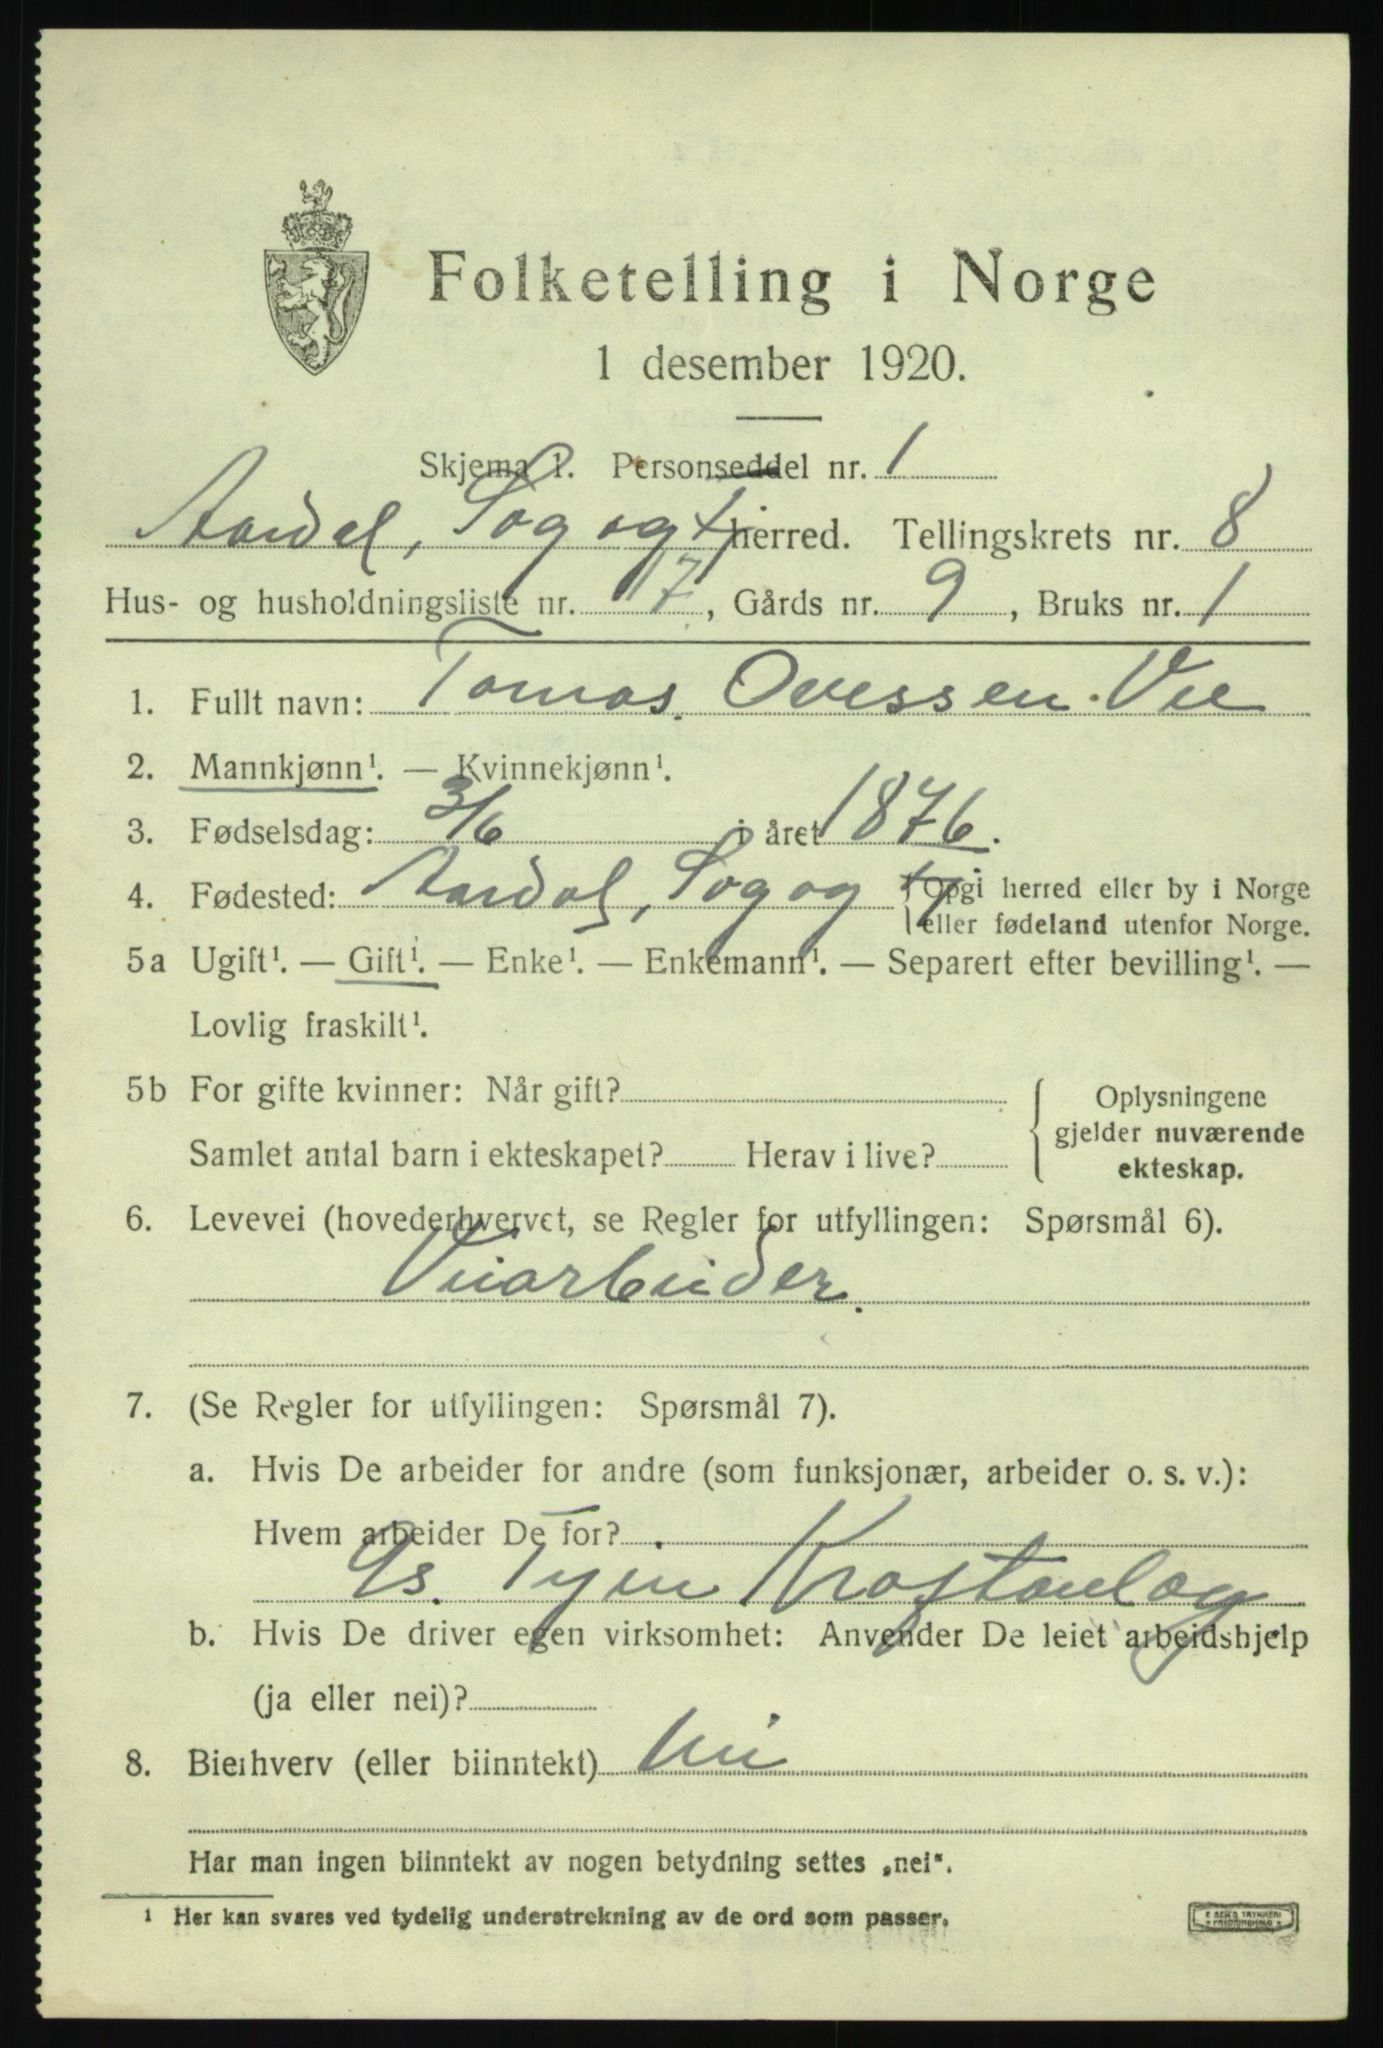 Folketelling i Norge
1 desember 1920.
Skjema 1. Personseddel nr. 1
Aardal, Sogogfj herred. Tellingskrets nr. 8
Hus- og husholdningsliste nr. 17, Gårds nr. 9, Bruks nr. 1
1. Fullt navn: Tomas Ovessen Vee
2. Mannkjønn¹. — Kvinnekjønn¹.
3. Fødselsdag: 3/6 i året 1876.
4. Fødested: Aardal, Sogog fj {Opgi herred eller by i Norge
eller fødeland utenfor Norge.
5a Ugift¹. — Gift¹. — Enke¹. — Enkemann¹. — Separert efter bevilling¹. —
Lovlig fraskilt¹.
5b For gifte kvinner: Når gift?
Samlet antal barn i ekteskapet? Herav i live?
{Oplysningene
gjelder nuværende
ekteskap.
6. Levevei (hovederhvervet, se Regler for utfyllingen: Spørsmål 6).
Veiarbeider.
7. (Se Regler for utfyllingen: Spørsmål 7).
a. Hvis De arbeider for andre (som funksjonær, arbeider o. s. v.):
Hvem arbeider De for?
Tyin Kraftanlæg.
b. Hvis De driver egen virksomhet: Anvender De leiet arbeidshjelp
(ja eller nei)?
8. Bierhverv (eller biinntekt) Nei
Har man ingen biinntekt av nogen betydning settes „nei“.
¹ Her kan svares ved tydelig understrekning av de ord som passer.